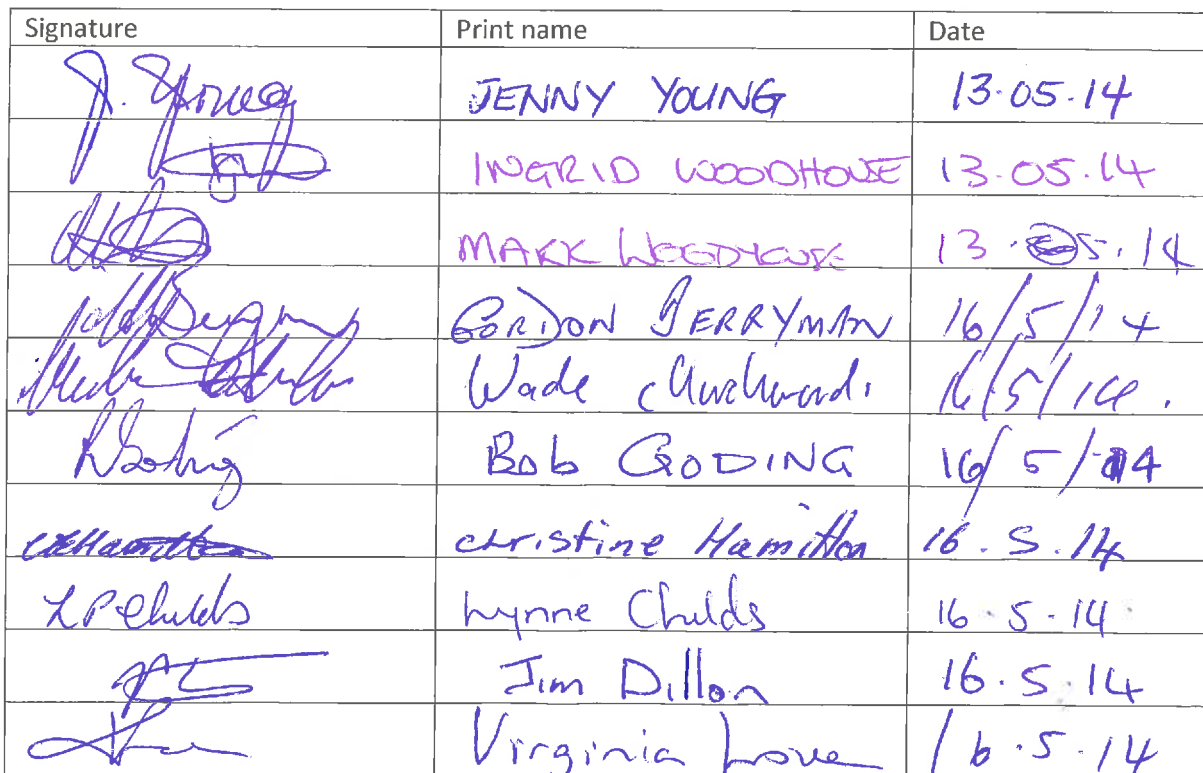 Signature Print name Date
J. Young JENNY YOUNG 13.05.14
INGRID WOODHOUSE 13.05.14
MARK WOODHOUSE 13. 5.14
GORDON BERRYMAN 16/5/14
Wade 16/5/14.
Bob GODING 16/5/14
Christine Hamilton 16.5.14
L P Childs Lynne Childs 16.5.14
Jim Dillon 16.5.14
Virginia Love 16.5.14